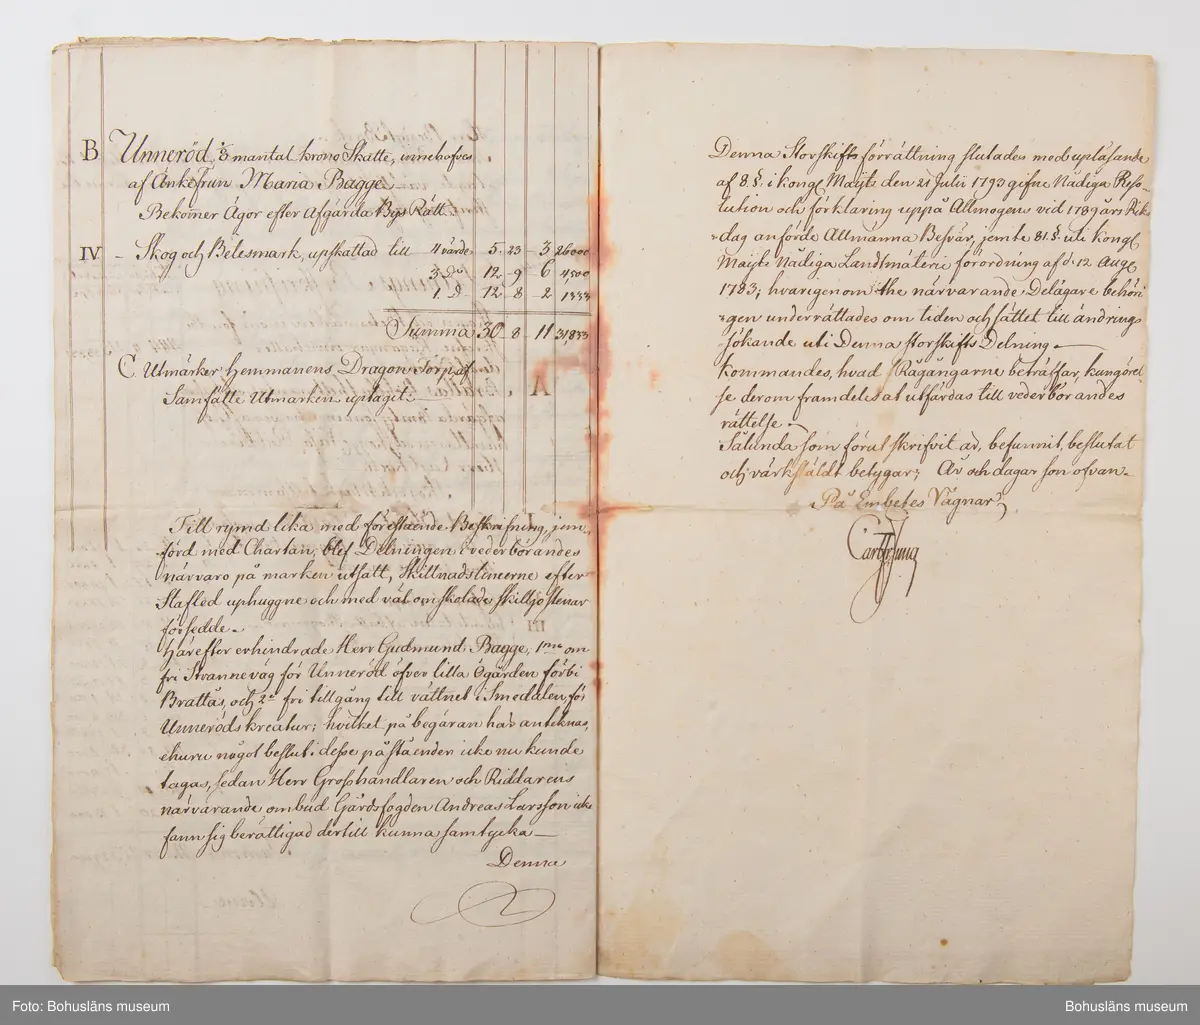 B Unneröd, mantal krono Skatte, innehafves
af Ankefrun Maria Bagge
Bekom̄er Ägor efter Afgärda Bys Rätt.
IV – Skog och Betesmark, upskattad till 4 värde 5. 23 – 3 26000
3. Do 12. – 9 6 4500
1. D– 12 – 8 – 2 1333
Summa 30 8 – 11 31833
C. Utmärker Hemmanens Dragon Torp af
Samfälte Utmarken uptagit. –
Till rymd lika med förestående Beskrifning, jem-
förd med Chartan, blef Delningen i vederbörandes
närvaro på marken utsatt, Skillnadslinierne efter
Stafled uphuggne och med väl omskolade skilljostenar
försedde. –
Härefter erhindrade Herr Gudmund Bagge, 1mo om
fri Strannevåg för Unneröd öfver lilla Ögården förbi
Brattås, och 2o fri tillgång till vattnet i Smedalen, för
Unneröds kreatur; hvilket på begäran har anteknas,
ehuru något beslut i desse påståenden icke nu kunde
tagas, sedan Herr Grosshandlaren och Riddarens
närvarande ombud Gårdsfogden Andreas Larsson icke
fann sig berättigad dertill kunna samtycka –
Denna
Denna Storskifts förrättning slutades med upläsande
af 8. §. i Kongl Maijts den 21 Julii 1793 gifne Nådiga Reso-
lution och förklaring uppå Allmogens vid 1789 års Rik-
dag anförde Allmänna Besvär, jemte 81. §. uti Kongl
Maijts Nådiga Landtmäterie förordning af d. 12 Aug
1783; hvaregenom the närvarande Delägare behöri-
gen underrättades om tiden och sättet till ändrings
sökande uti Denna storskifts Delning. –
kommandes, hvad Rågångarne beträffar, kungörel-
se derom framdeles at utfärdas till vederbörandes
rättelse. –
Sålunda som förut skrifvit är, befunnit, beslutat
och värkstäldt betygar; År och dagar som ofvan –
På Embetes Vägnar
Foto: Bohusläns museum
Bohusläns museum